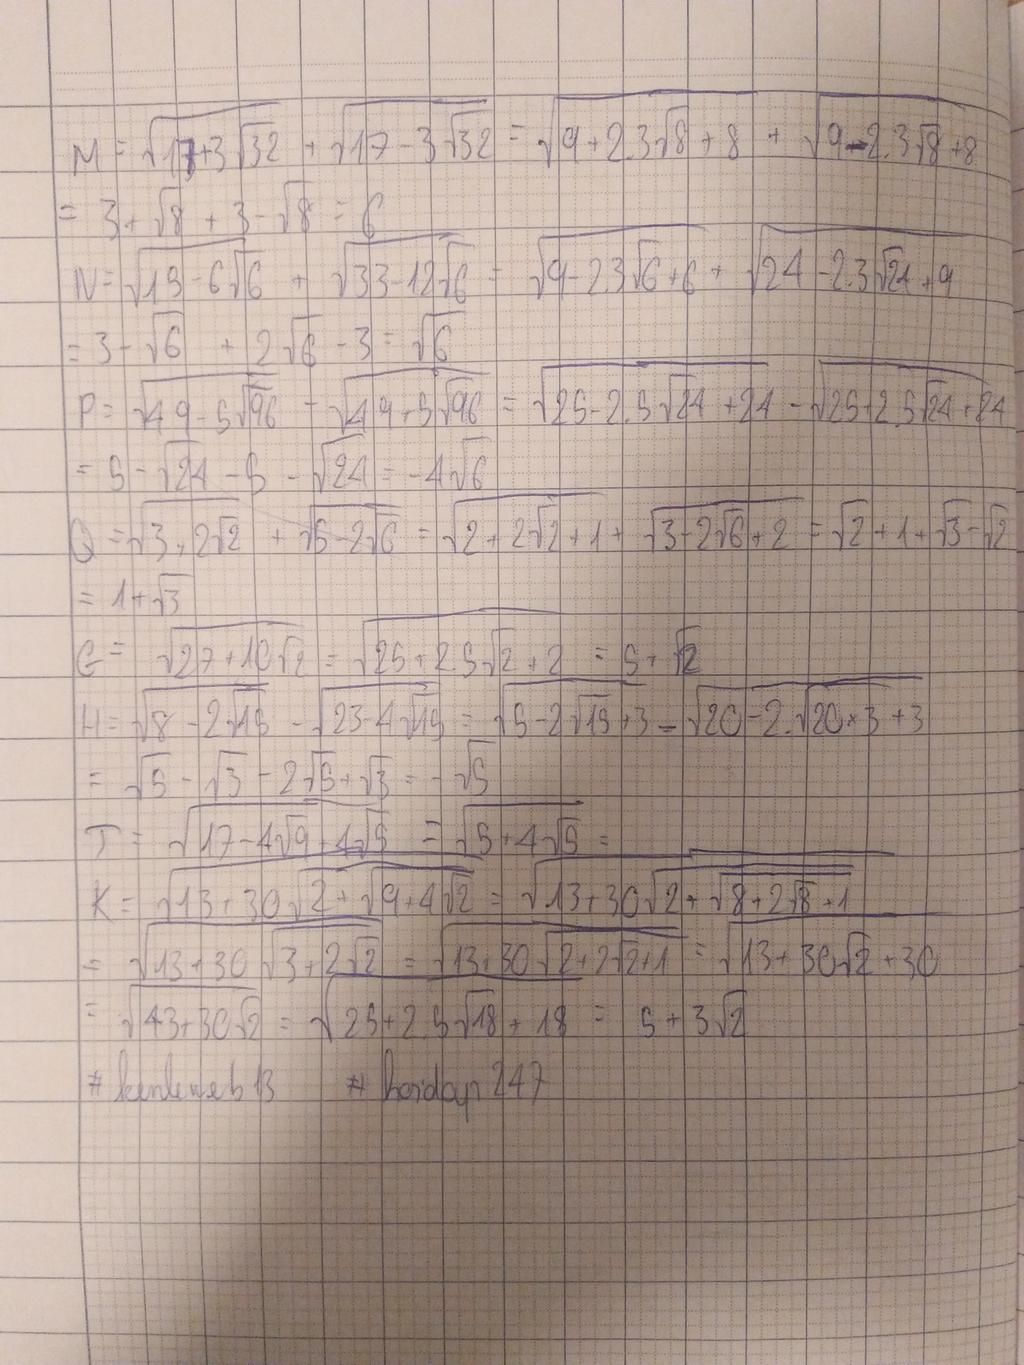 M = √(17+3√32) + √(17-3√32) = √(9+2.3√8+8) + √(9-2.3√8+8)
= 3+√8 + 3-√8 = 6
N = √(15-6√6) + √(33-12√6) = √(9-23√6+6) + √(24-2.3√24+9)
= 3-√6 + 2√6-3 = √6
P = √(49-5√96) - √(49+5√96) = √(25-2.5√24+24) - √(25+2.5√24+24)
= 5-√24-5-√24 = -4√6
Q = √(3+2√2) + √(5-2√6) = √(2+2√2+1) + √(3-2√6+2) = √2+1+√3-√2
= 1+√3
G = √(27+10√2) = √(25+2.5√2+2) = 5+√2
H = √(8-2√15) - √(23-4√15) = √(5-2√15+3) - √(20-2.√20×3+3)
= √5-√3-2√5+√3 = -√5
T = √(17-4√9+4√5) = √(5+4√5) =
K = √(13+30√(2+√(9+4√2))) = √(13+30√(2+√(8+2√8+1)))
= √(13+30√(3+2√2)) = √(13+30√(2+2√2+1)) = √(13+30√2+30)
= √(43+30√2) = √(25+2.5√18+18) = 5+3√2